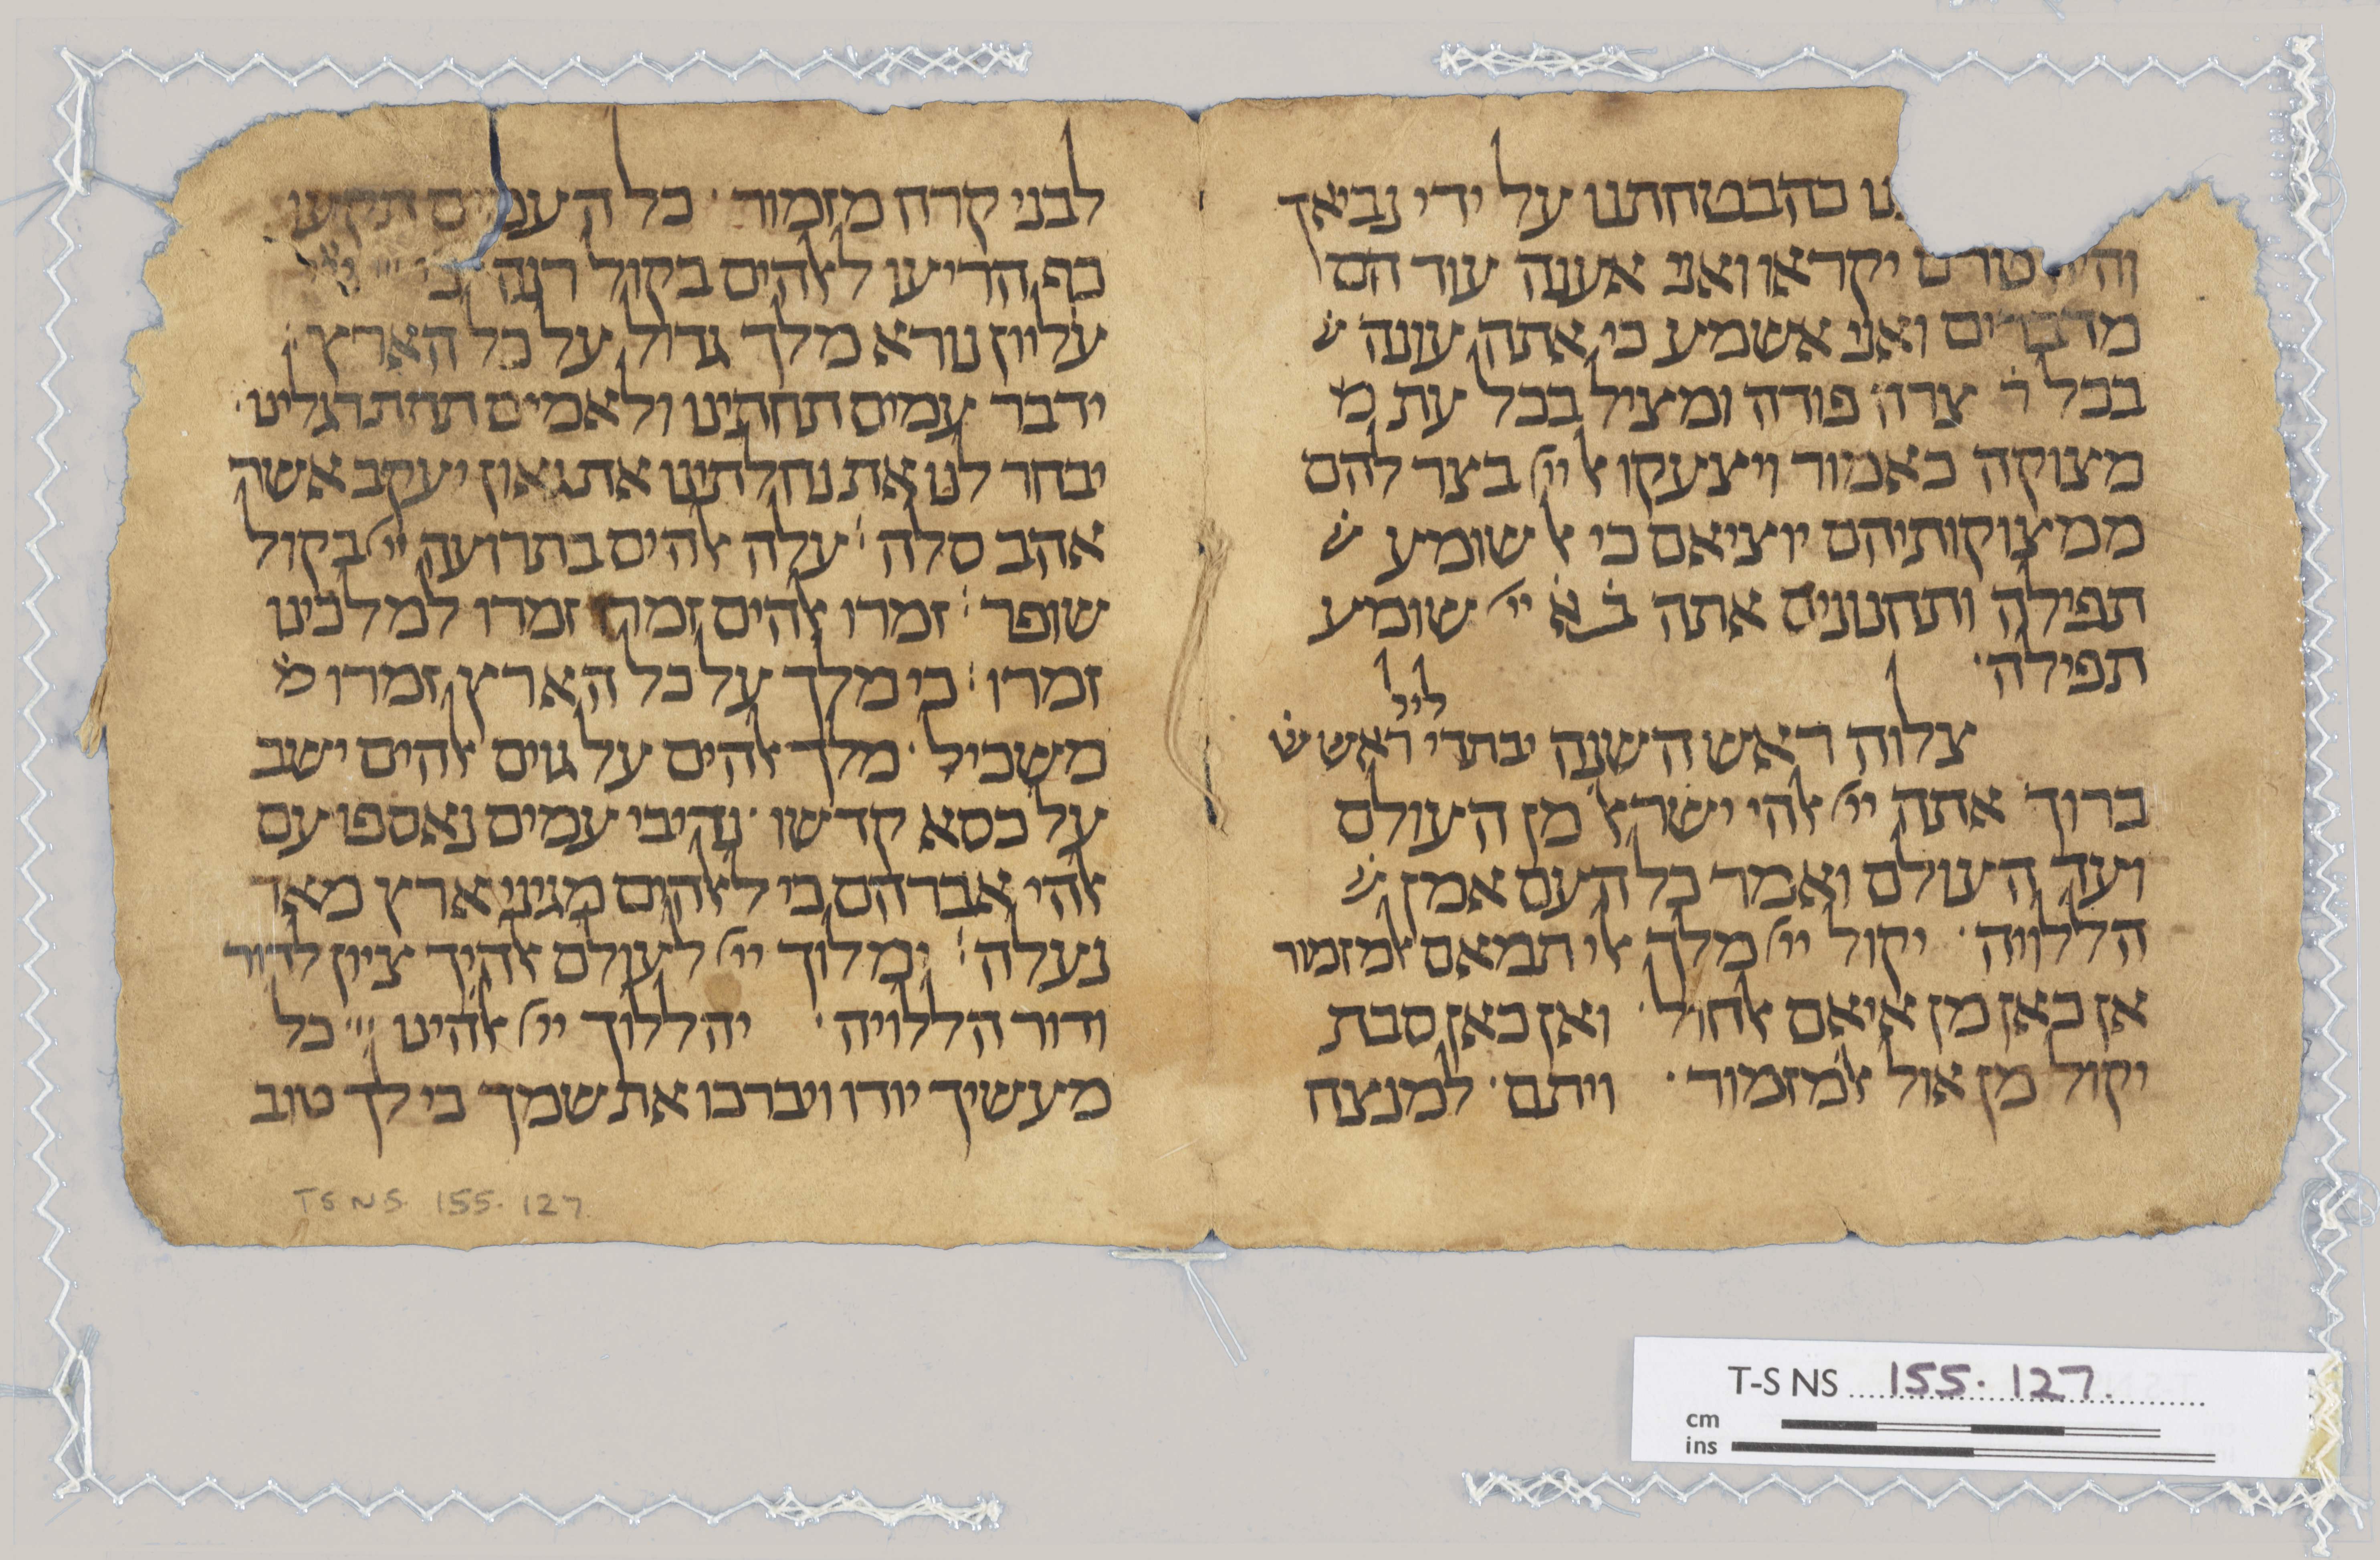 נו כהבטחתנו על ידי נביאך
והיה טרם יקראו ואני אענה עוד הם
מדברים ואני אשמע כי אתה עונה ע
בכל צרה פודה ומציל בכל עת מ
מצוקה כאמור ויצעקו אל ייי בצר להם
ממצוקותיהם יוציאם כי אל שומע ע
תפילה ותחנונים אתה בא ייי שומע
תפילה·
צלוה ראש השנה יבתדי ליל ראש ש
ברוך אתה ייי אלהי ישראל מן העולם
ועד העולם ואמר כל העם אמן ע
הללויה · יקול ייי מלך אלי תמאם אלמזמור
אן כאן מן איאם אלחול · ואן כאן סבת
יקול מן אול אלמזמור · ויתם · למנצח
לבני קרח מזמור · כל העמים תקעו
כף הריעו לאלהים בקול רנה כי ייי
עליון נורא מלך גדול על כל הארץ
ידבר עמים תחתינו ולאמים תחת רגלינו·
יבחר לנו את נחלתינו את גאון יעקב אשר
אהב סלה עלה אלהים בתרועה ייי בקול
שופר זמרו אלהים זמרו זמרו למלכינו
זמרו כי מלך על כל הארץ זמרו מ
משכיל · מלך אלהים על גוים אלהים ישב
על כסא קדשו · נדיבי עמים נאספו עם
אלהי אברהם כי לאלהים מגיני ארץ מאד
נעלה ימלוך ייי לעולם אלהיך ציון לדור
ודור הללויה · יהללוך ייי אלהינו כל
מעשיך יודו ויברכו את שמך כי לך טוב
TS NS. 155. 127.
T-S NS 155. 127.
cm
ins